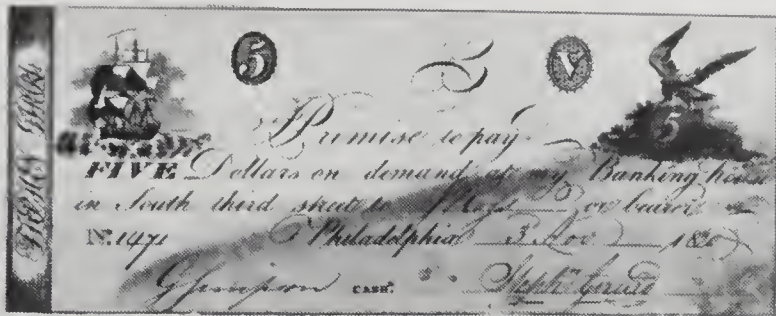 5 V
5
I Promise to pay
FIVE Dollars on demand at my Banking house
in South third street to or bearer
No. 1471 Philadelphia 3 Nov 18
G Simpson CASHr. Stephn. Girard